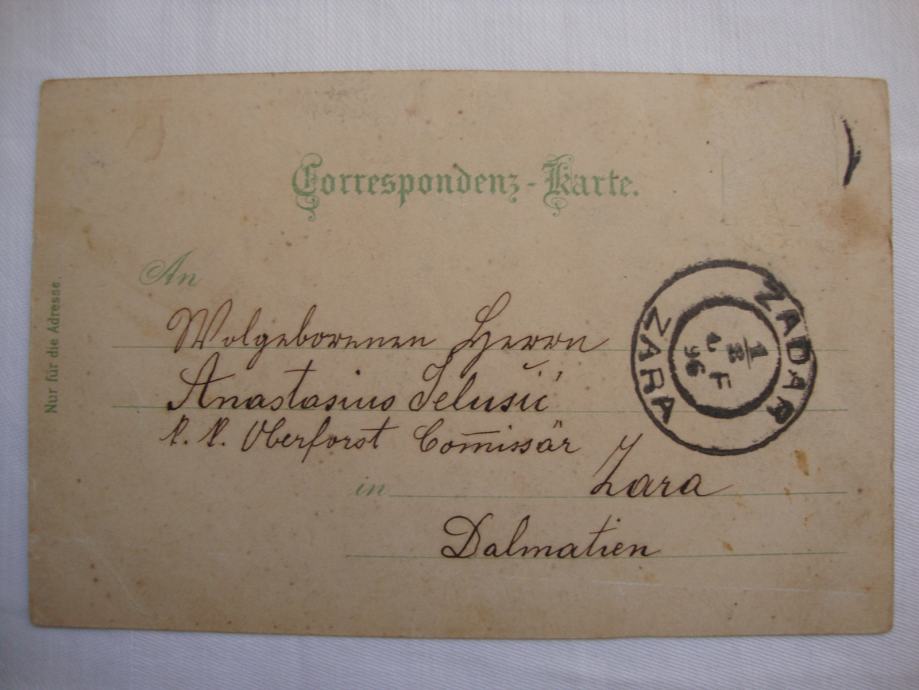 Correspondenz-Karte.
Nur für die Adresse.
An
Wolgeborenen Herrn
Anastasius Jelusić
k. k. Oberforst Com̅issär
in Zara
Dalmatien
ZADAR
ZARA
1
2
96
F